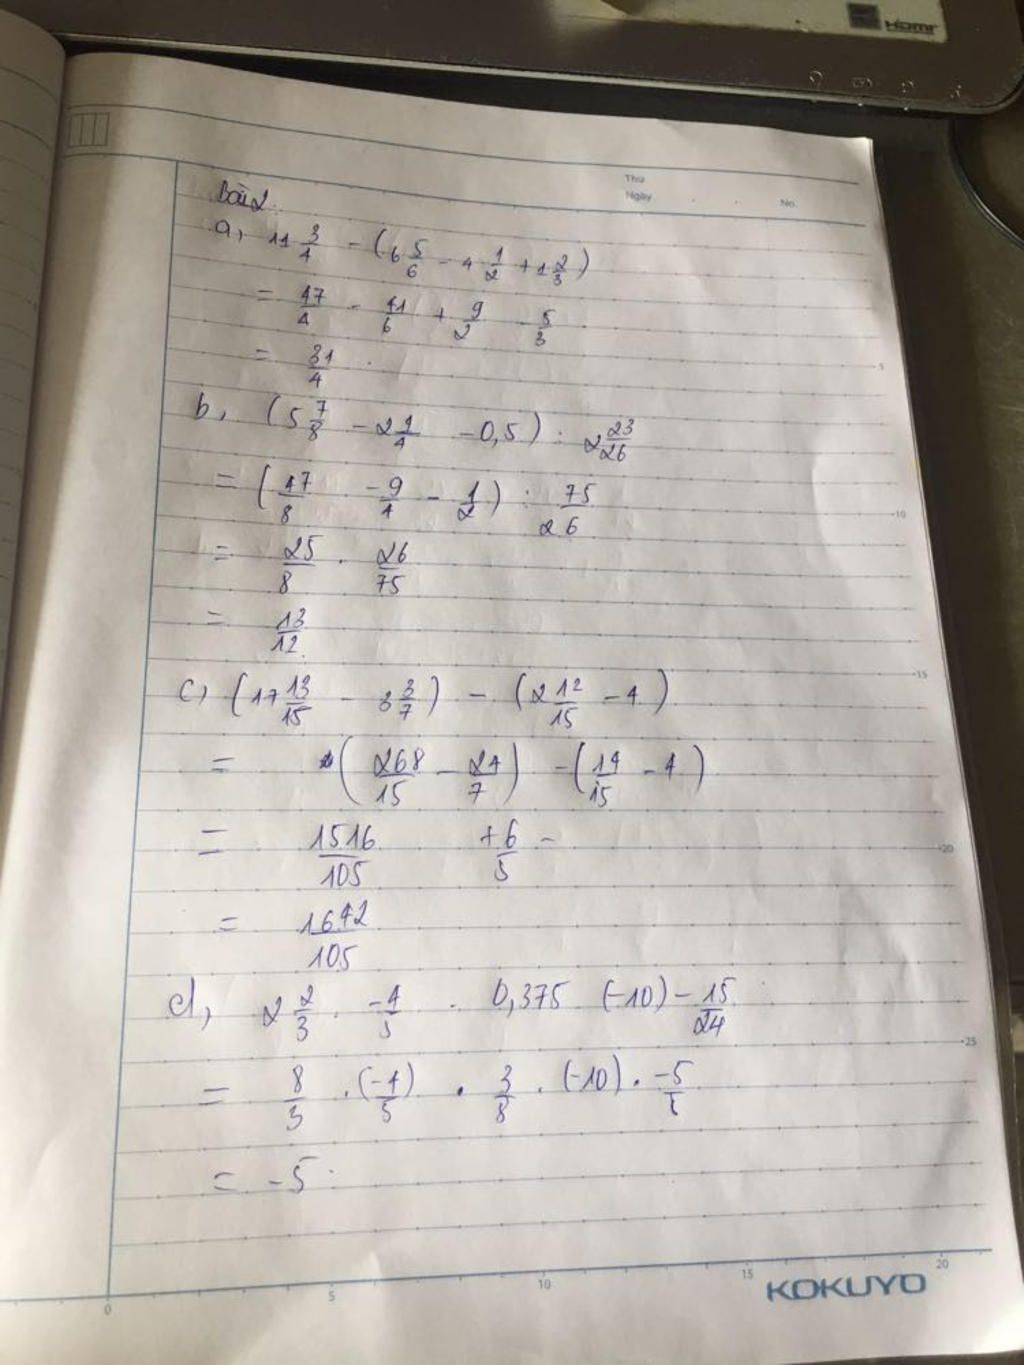 HDMI
Thứ
Ngày
No.
Bài 2.
a, 11 3/4 - (6 5/6 - 4 1/2 + 1 2/3)
= 47/4 - 41/6 + 9/2 - 5/3
= 31/4 .
5
b, (5 7/8 - 2 1/4 - 0,5) : 2 23/26
= (47/8 - 9/4 - 1/2) : 75/26
10
= 25/8 . 26/75
= 13/12.
15
c, (17 13/15 - 3 3/7) - (2 12/15 - 4)
= (268/15 - 24/7) - (14/15 - 4)
= 1516/105 + 6/5 -
20
= 1642/105
d, 2 2/3 . -4/5 . 0,375 (-10) - 15/24
25
= 8/3 . (-4/5) . 3/8 . (-10) . -5/
= -5 .
0 5 10 15 20
KOKUYO